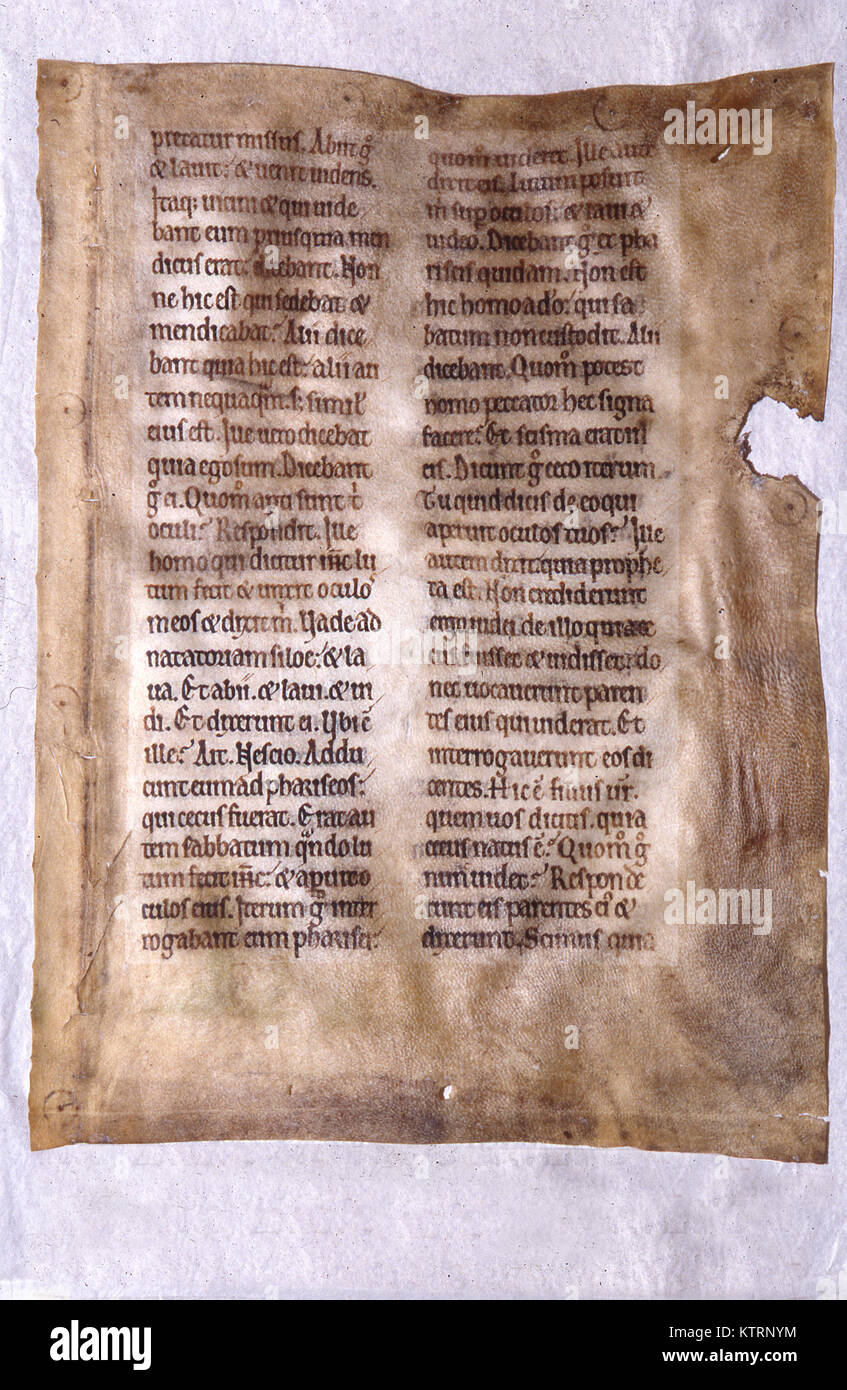 pretatur missus. Abiit g̊
& lauit: & uenit uidens.
Itaq; uicini & qui uide
bant eum priusquia men
dicus erat: dicebant. Non
ne hic est qui sedebat &
mendicabat? Alii dice
bant quia hic est: alii au
tem nequaq̄m. s; simil'
eius est. Ille uero dicebat
quia ego sum. Dicebant
g̊ ei. Quom̊ aperti sunt t̓
oculi? Respondit. Ille
homo qui dicitur iħc lu
tum fecit & unxit oculo'
meos & dixit m̓. Uade ad
natatoriam siloe: & la
ua. Et abii. & laui. & ui
di. Et dixerunt ei. Ubi ē
ille? Ait. Nescio. Addu
cunt eum ad phariseos:
qui cecus fuerat. Erat au
tem sabbatum qn̄do lu
tum fecit iħc: & aperuit o
culos eius. Iterum g̊ inter
rogabant eum pharisei:
quom̊ uidetit. Ille aut̄
dixit eis. Lutum posuit
m̓ super oculos: & laui &
uideo. Dicebant g̊ ex pha
riseis quidam. Non est
hic homo a do: qui sa
batum non custodit. Alii
dicebant. Quom̊ potest
homo peccator hec signa
facere? Et scisma erat in
eis. Dicunt g̊ ceco iterum.
Tu quid dicis de eo qui
aperuit oculos tuos? Ille
autem dixit: quia prophe
ta est. Non crediderunt
ergo iudei de illo quia ce
cu' fuisset & uidisset: do
nec uocauerunt paren
tes eius qui uiderat. Et
interrogauerunt eos di
centes. Hic ē filius ur̄.
quem uos dicitis. quia
cecus natus ē? Quom̊ g̊
nunc uidet? Responde
runt eis parentes ei' &
dixerunt. Scimus quia
alamy
Image ID: KTRNYM
www.alamy.com